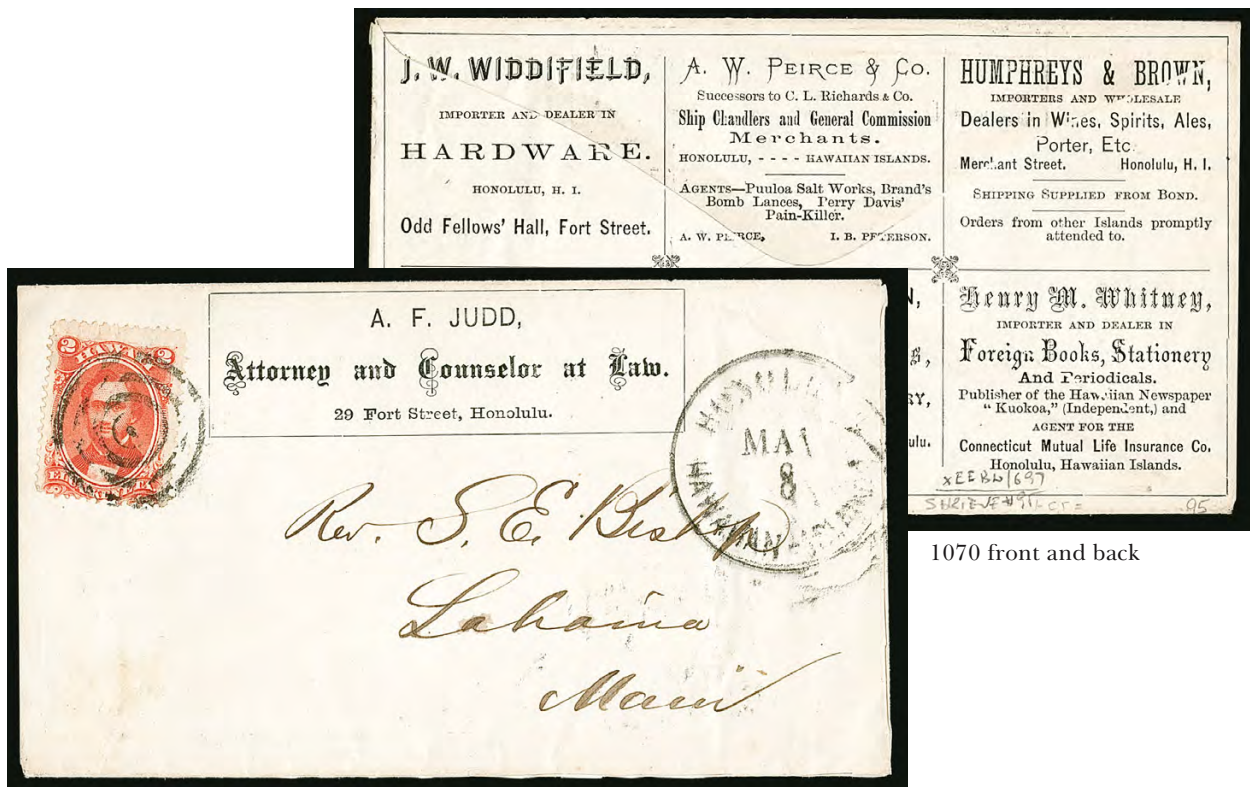 J. W. WIDDIFIELD,
IMPORTER AND DEALER IN
HARDWARE.
HONOLULU, H. I.
Odd Fellows' Hall, Fort Street.
A. W. PEIRCE & CO.
Successors to C. L. Richards & Co.
Ship Chandlers and General Commission
Merchants.
HONOLULU, - - - - HAWAIIAN ISLANDS.
AGENTS—Puuloa Salt Works, Brand's
Bomb Lances, Perry Davis'
Pain-Killer.
A. W. PEIRCE, I. B. PETERSON.
HUMPHREYS & BROWN,
IMPORTERS AND WHOLESALE
Dealers in Wines, Spirits, Ales,
Porter, Etc
Merchant Street. Honolulu, H. I.
SHIPPING SUPPLIED FROM BOND.
Orders from other Islands promptly
attended to.
Henry M. Whitney,
IMPORTER AND DEALER IN
Foreign Books, Stationery
And Periodicals.
Publisher of the Hawaiian Newspaper
"Kuokoa," (Independent,) and
AGENT FOR THE
Connecticut Mutual Life Insurance Co,
Honolulu, Hawaiian Islands.
ulu.
95
2 2
A. F. JUDD,
Attorney and Counselor at Law.
29 Fort Street, Honolulu.
HONOLULU
MAY
8
HAWAIIAN ISLANDS
Rev. S. E. Bishop
Lahaina
Maui
1070 front and back